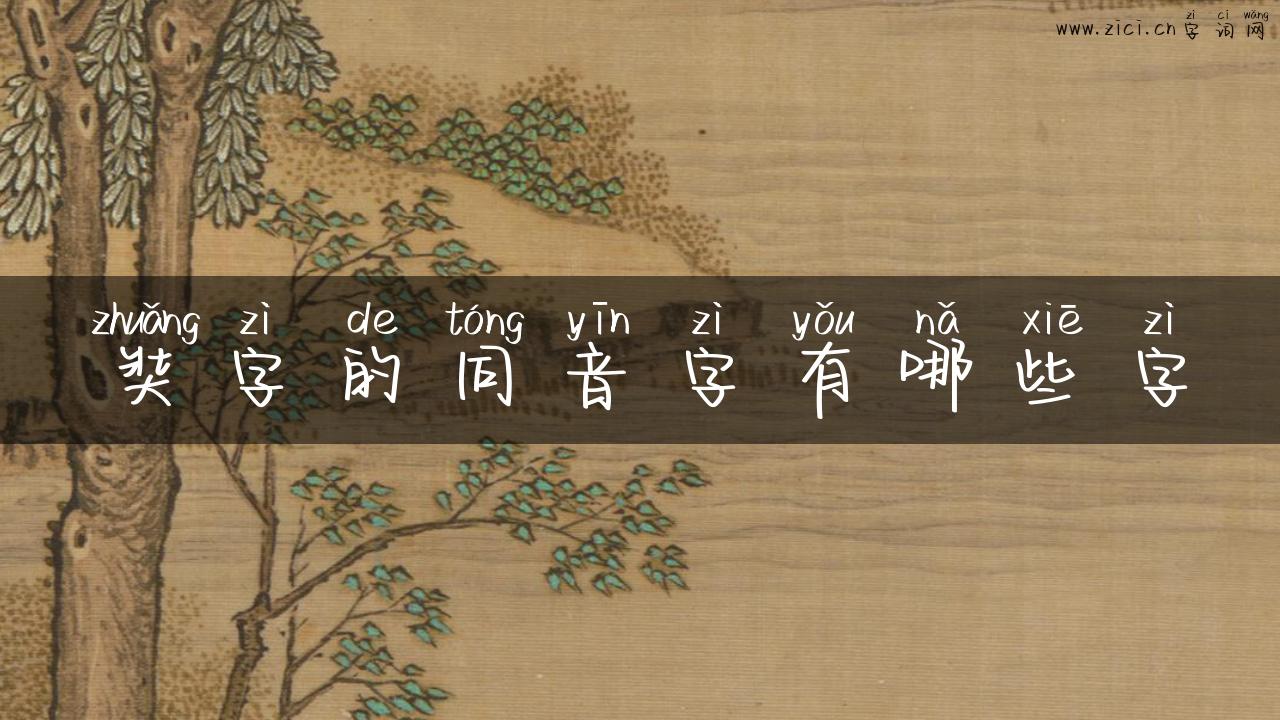 zì cí wǎng
www.zici.cn 字词网
zhuǎng zì de tóng yīn zì yǒu nǎ xiē zì
奘字的同音字有哪些字